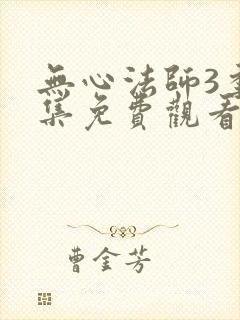 無心法師3全
集免費觀看
曹金芳